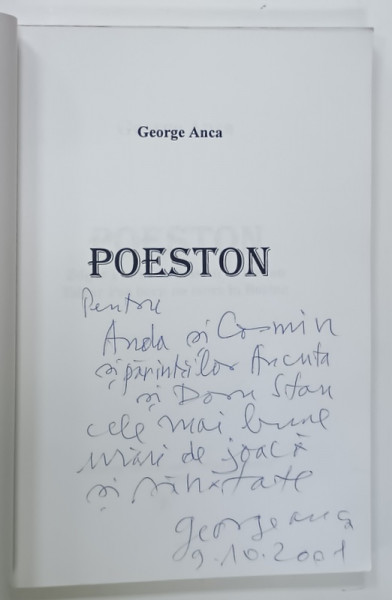 George Anca
POESTON
Pentru
Anda și Cosmin
și părinților Ancuta
și Doru Stan
cele mai bune
urări de joacă
și sănătate
george anca
9.10.2001